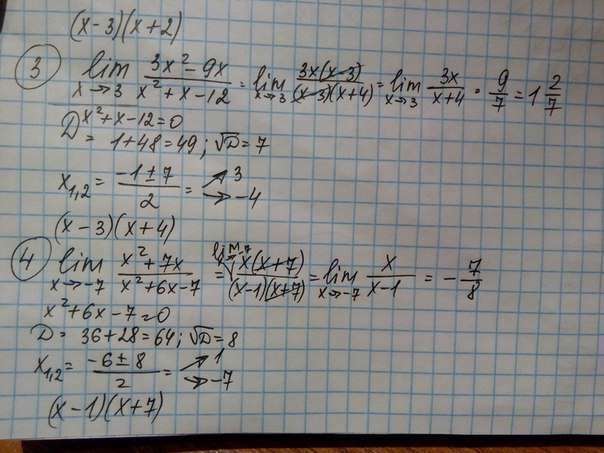 (x-3)(x+2)
③ lim x→3 (3x²-9x)/(x²+x-12) = lim x→3 (3x(x-3))/((x-3)(x+4)) = lim x→3 3x/(x+4) · 9/7 = 1 2/7
x²+x-12=0
D = 1+48=49; √D=7
x₁,₂ = (-1±7)/2 = ↗3 ↘-4
(x-3)(x+4)
④ lim x→-7 (x²+7x)/(x²+6x-7) = lim x→-7 (x(x+7))/((x-1)(x+7)) = lim x→-7 x/(x-1) = -7/8
x²+6x-7=0
D = 36+28=64; √D=8
x₁,₂ = (-6±8)/2 = ↗1 ↘-7
(x-1)(x+7)